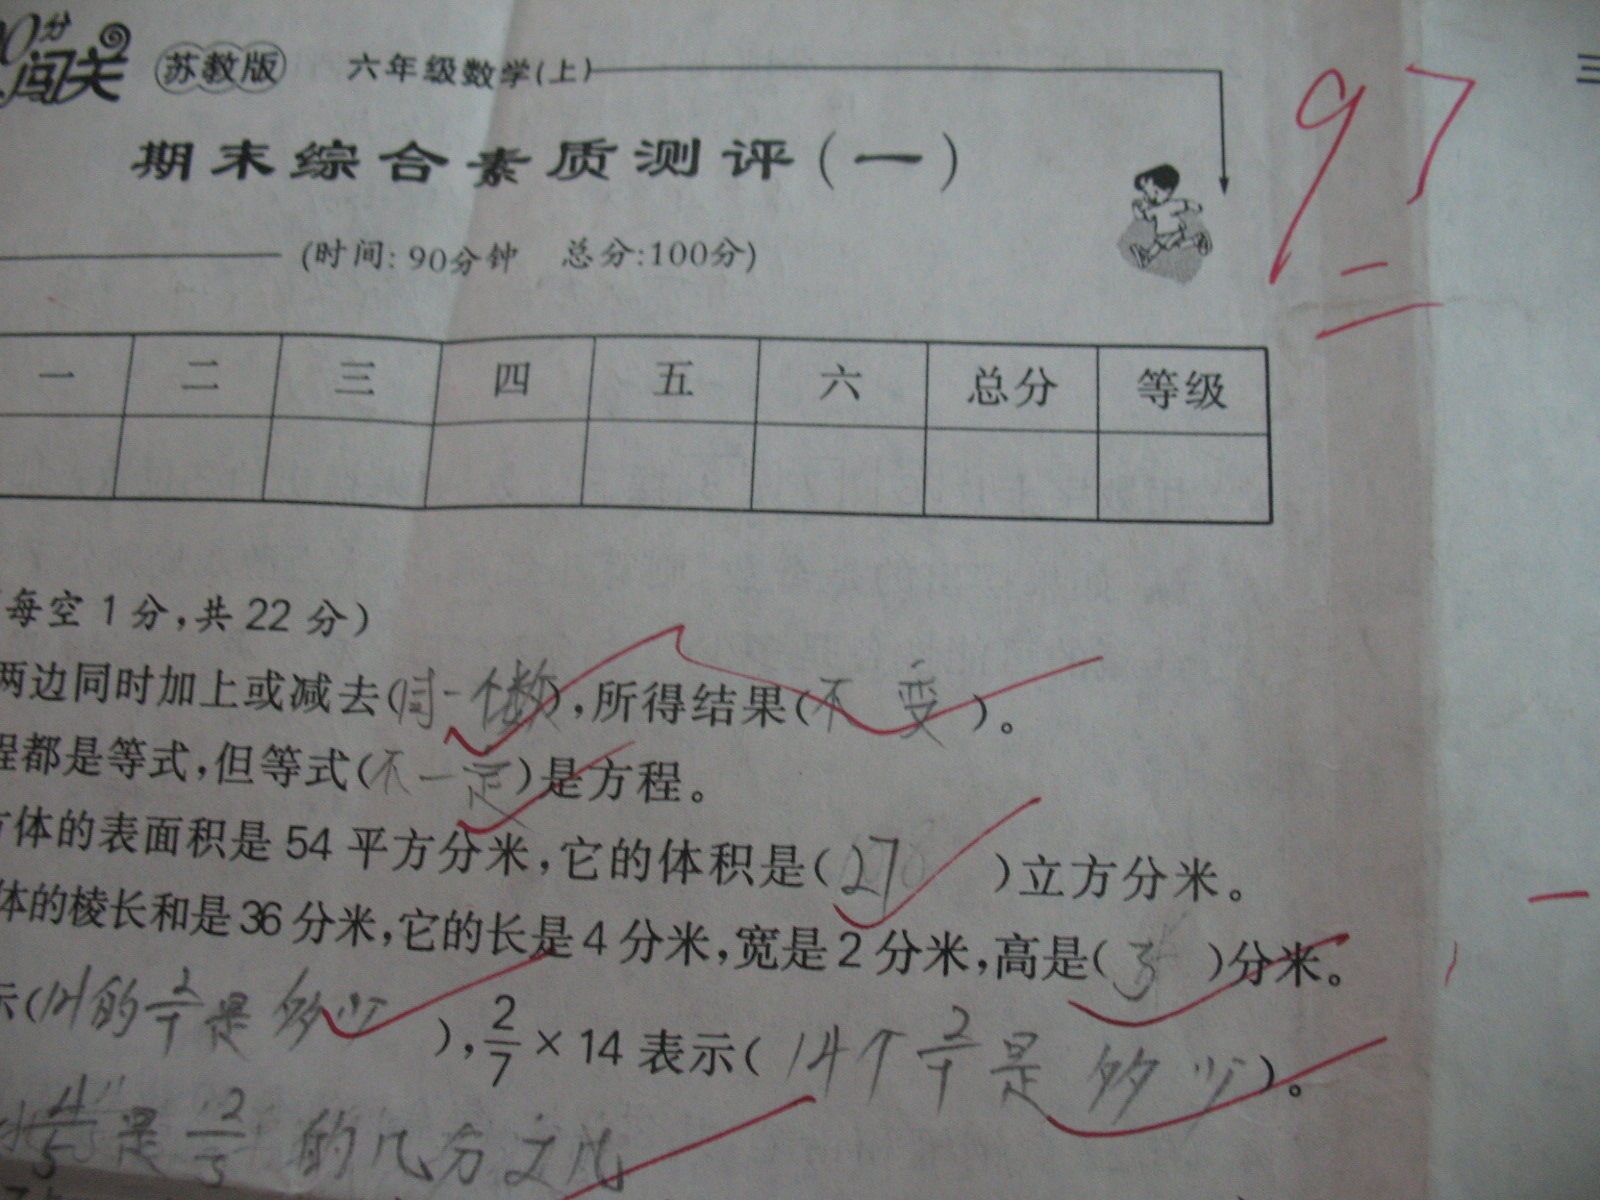 0分
闯关 苏教版 六年级数学(上)
97
三
期末综合素质测评(一)
(时间:90分钟 总分:100分)
一 二 三 四 五 六 总分 等级
每空1分,共22分)
两边同时加上或减去(同一个数),所得结果(不变)。
程都是等式,但等式(不一定)是方程。
方体的表面积是54平方分米,它的体积是(27)立方分米。
体的棱长和是36分米,它的长是4分米,宽是2分米,高是(3)分米。
示(14的2/7是多少),2/7×14表示(14个2/7是多少)。
4/5是2/3的几分之几